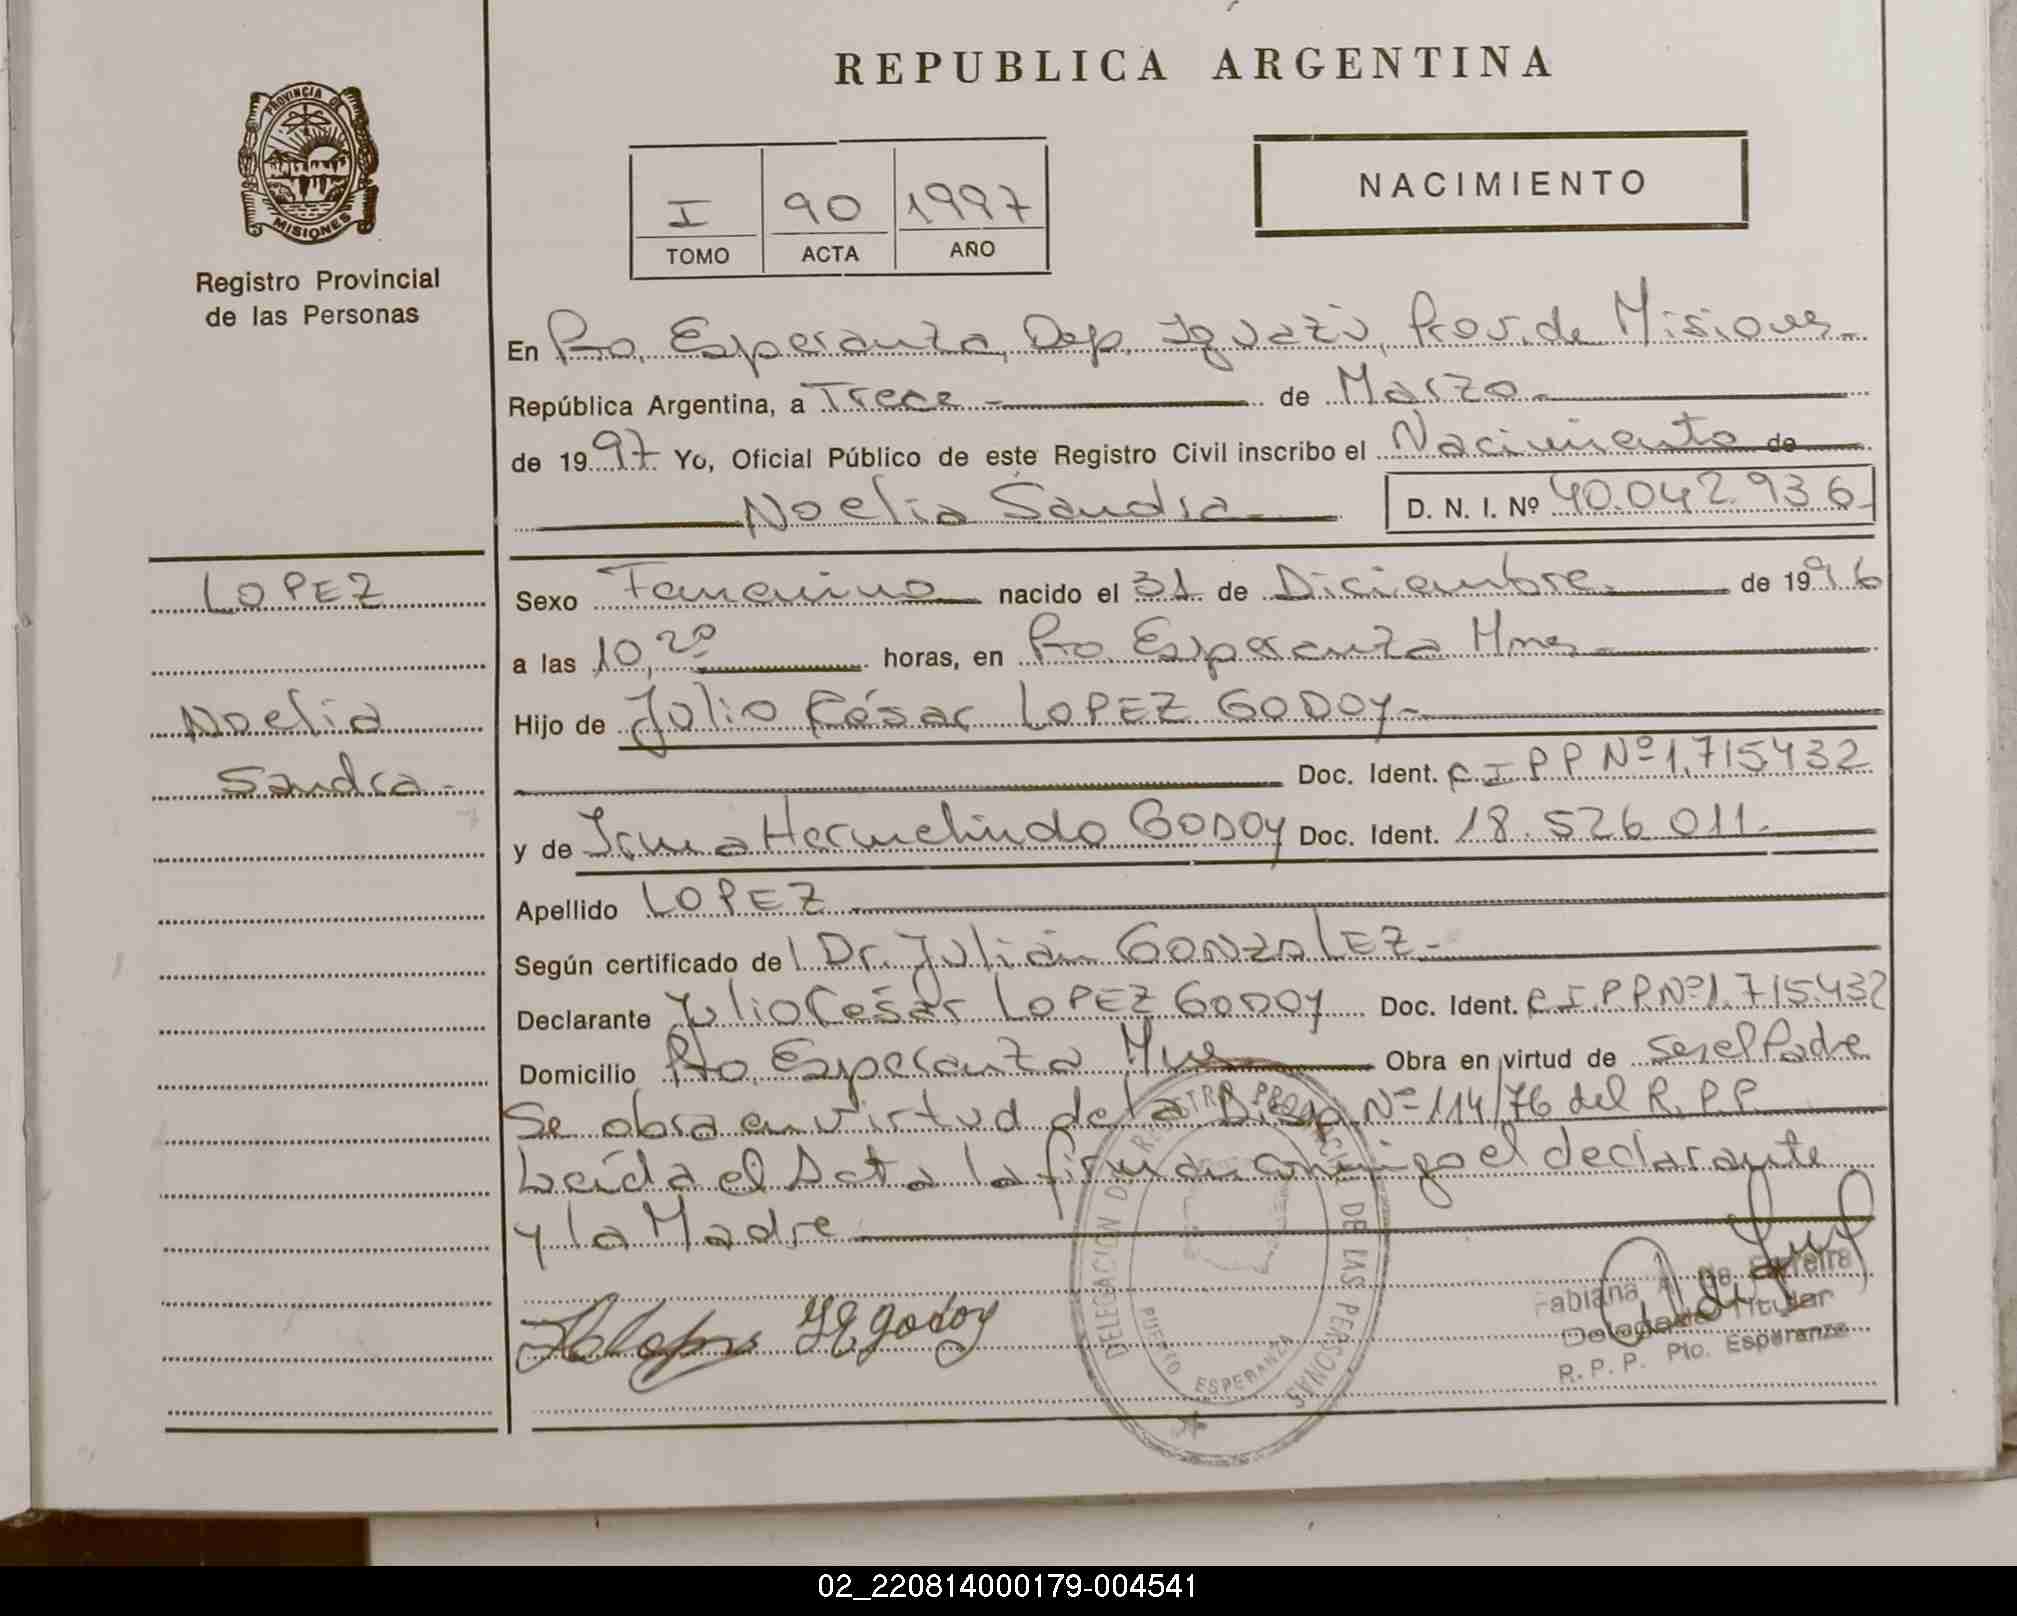 REPUBLICA ARGENTINA
PROVINCIA DE
MISIONES
Registro Provincial
de las Personas
I 90 1997
TOMO ACTA AÑO
NACIMIENTO
En Pto. Esperanza, Dep. Iguazú, Prov. de Misiones
República Argentina, a Trece de Marzo
de 1997 Yo, Oficial Público de este Registro Civil inscribo el Nacimiento de
Noelia Sandra D. N. I. Nº 40.042.936
LOPEZ
Noelia
Sandra
Sexo Femenino nacido el 31 de Diciembre de 1996
a las 10,20 horas, en Pto Esperanza Mnes
Hijo de Julio César LOPEZ GODOY
Doc. Ident. C I P P Nº 1.715432
y de Irma Hermelinda GODOY Doc. Ident. 18.526 011
Apellido LOPEZ
Según certificado del Dr. Julián GONZALEZ
Declarante Julio César LOPEZ GODOY Doc. Ident. C I. P P Nº 1.715432
Domicilio Pto. Esperanza Mnes Obra en virtud de ser el Padre
Se obra en virtud de la Disp. Nº 114/76 del R. P. P.
Leída el Acta la firman conmigo el declarante
y la Madre
DELEGACION DEL REGISTRO PROVINCIAL DE LAS PERSONAS
PUERTO ESPERANZA
Y E Godoy
Fabiana A. de
Delegada Titular
R. P. P. Pto. Esperanza
02_220814000179-004541